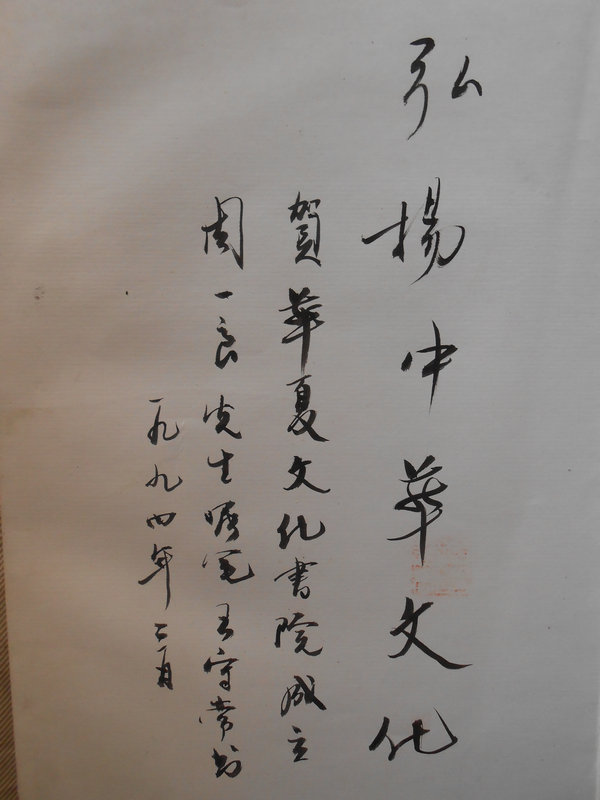 弘揚中華文化
賀華夏文化書院成立
周一良先生嘱笔王守常书
一九九四年二月